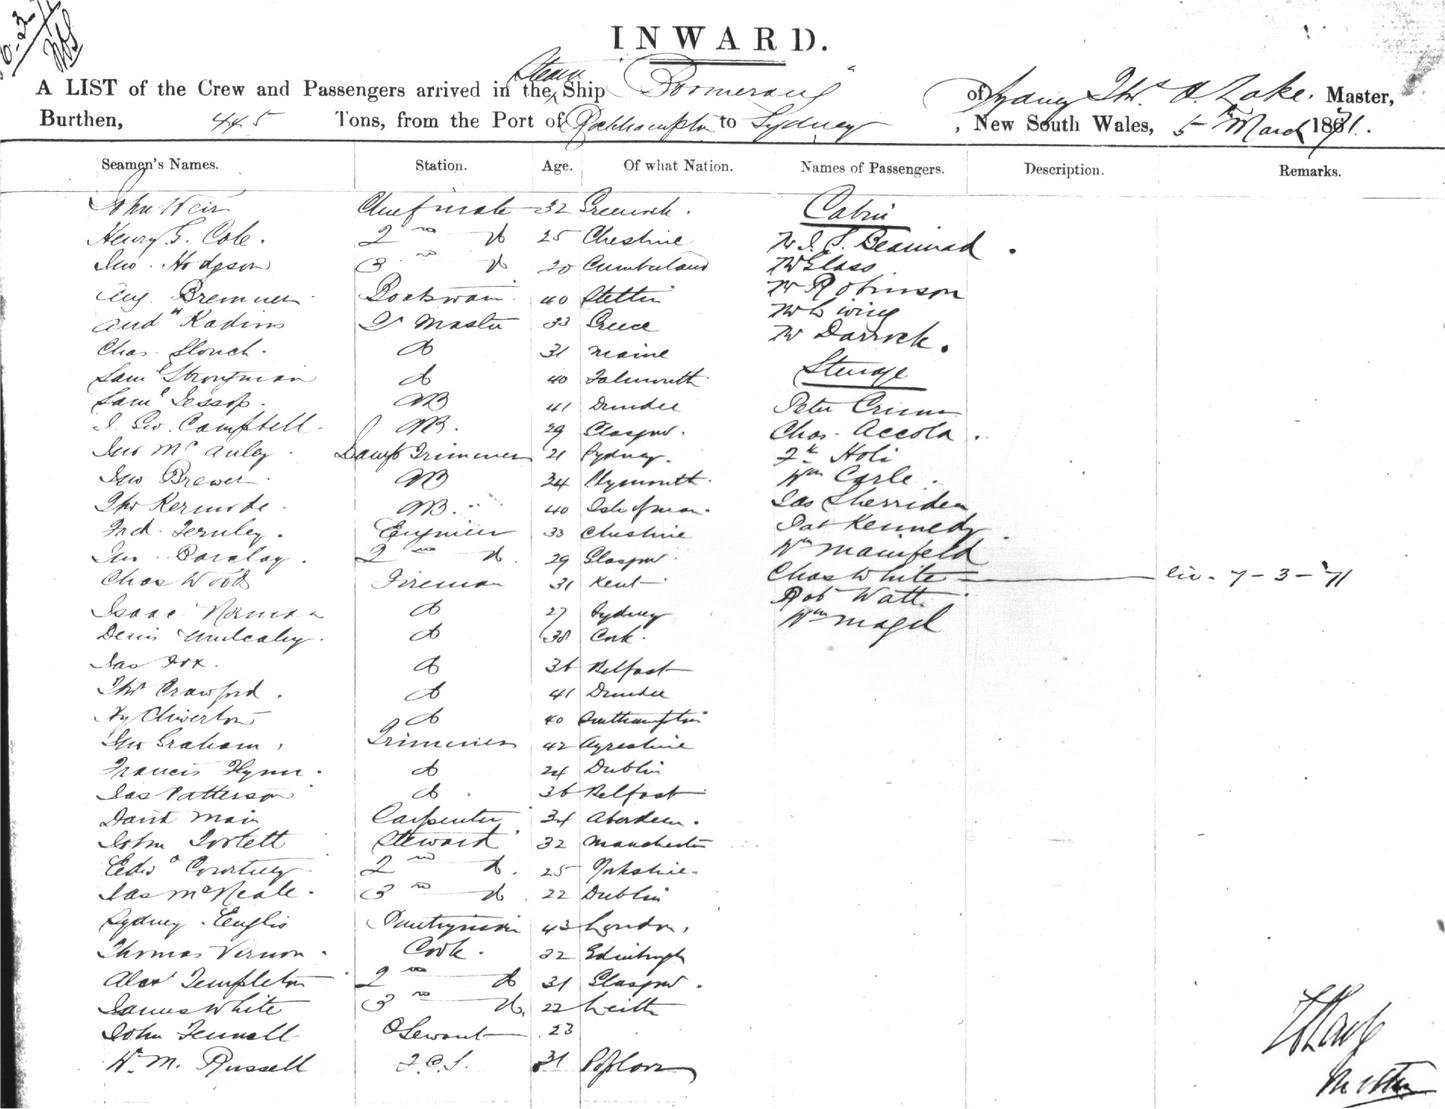 INWARD.
A LIST of the Crew and Passengers arrived in the Steam Ship "Boomerang" of Sydney Thos. A. Lake. Master,
Burthen, 445 Tons, from the Port of Rockhampton to Sydney, New South Wales, 5th March 1871.
Seamen's Names. Station. Age. Of what Nation. Names of Passengers. Description. Remarks.
John Weir Chief mate 32 Greenock. Cabin
Henry G. Cole. 2nd do 25 Cheshire
Jno. Hodgson 3 do 20 Cumberland Mr Glass
Bremner Boatswain 40 Stettin Mr Robinson
Kadins Qr Master 33 Greece Mr Ewing
Chas. Slouch. do 31 Maine Mr Darroch.
Saml Strongman do 40 Falmouth Steerage
Saml Jessop. AB 41 Dundee Peter
J. Geo. Campbell. AB. 29 Glasgow. Chas. Accola.
Jno McAuley. Lamp Trimmer 21 Sydney. Holi
Jno Brewer AB 34 Plymouth. Wm Carle.
Thos Kermode. AB. 40 Isle of man. Jas Sherriden
Fred. Fernley. Engineer 33 Cheshire Pat Kennedy
Jno Barclay. 2nd do. 29 Glasgow Wm Mainfeld
Chas Wood Fireman 31 Kent Chas White liv. 7-3-71
Isaac Norman do 27 Sydney Rob Watt
Denis Mulcahy. do 38 Cork. Wm Magel
Jas Fox. do 36 Belfast
Thos Crawford. do 41 Dundee
Hy Chiverton do 40 Southampton
Jno Graham, Trimmer 42 Ayreshire
Francis Flynn. do 24 Dublin
Jas Patterson do. 36 Belfast
David Main Carpenter 34 Aberdeen.
John Torlett Steward 32 Manchester
Edwd Courtney 2nd do. 25 Yorkshire.
Jas McNeale. 3rd do. 22 Dublin
Sydney Englis Pantryman 43 London,
Thomas Vernon. Cook. 32 Edinburgh
Alex Templeton 2nd do 31 Glasgow.
James White 3rd do. 22 Leith
John Fennell O Servant 23
W. M. Russell F.C.S. 31 Poplar